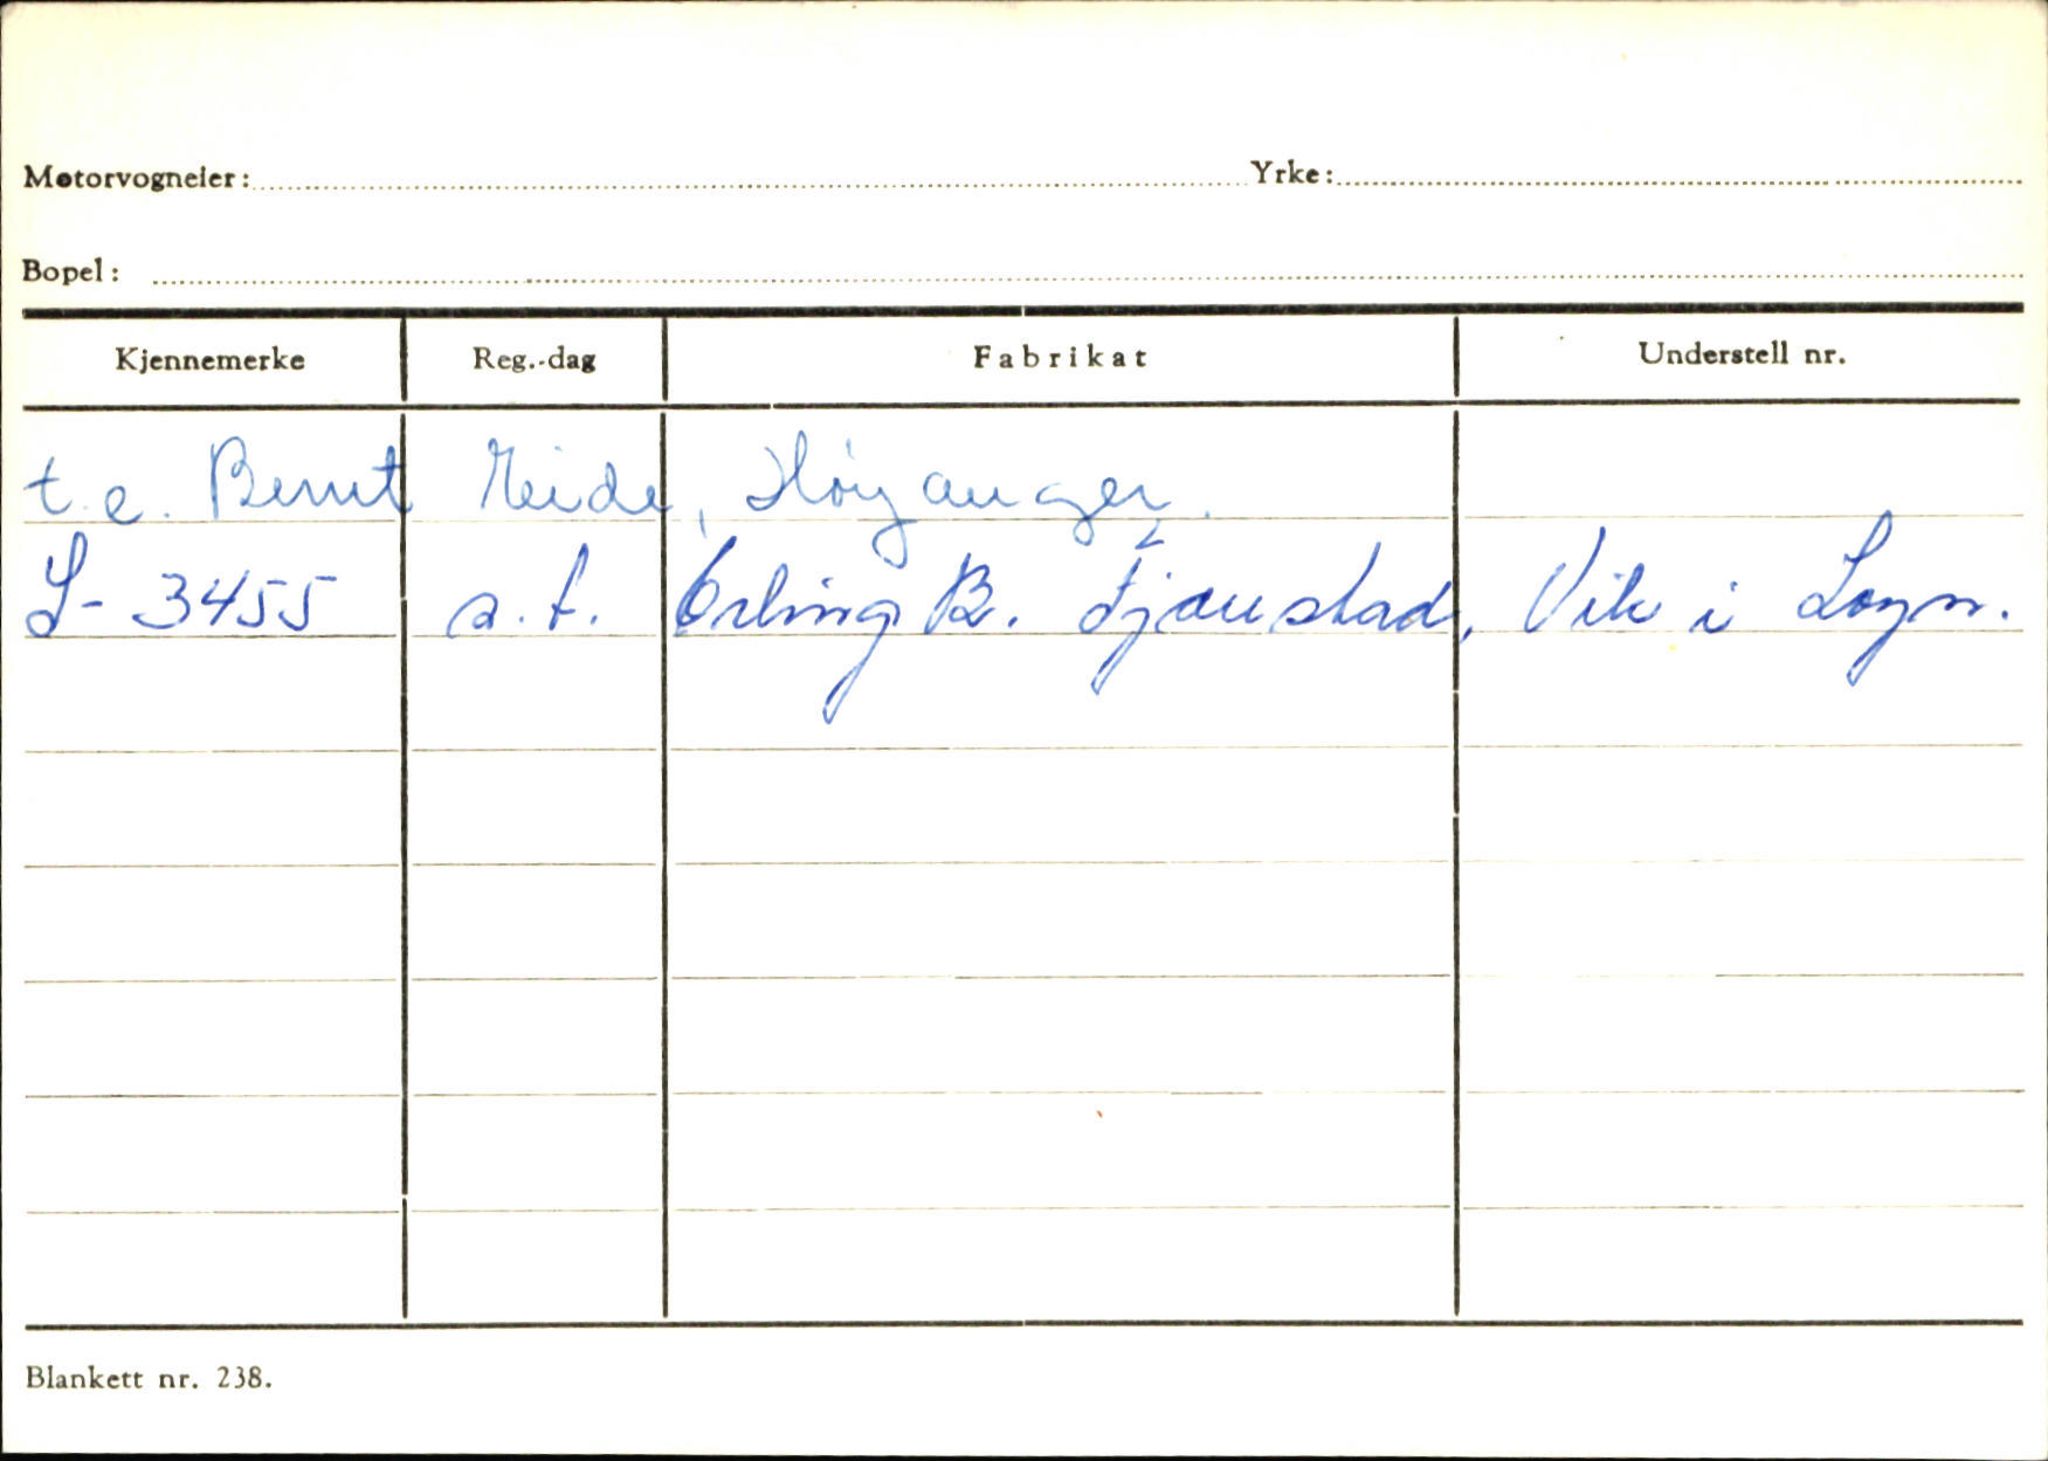 Motorvogneier: Yrke:
Bopel:
Kjennemerke Reg.-dag Fabrikat Understell nr.
t.e. Bernt Heide, Høyanger.
S-3455 s.t. Erling B. Fjærestad, Vik i Sogn.
Blankett nr. 238.